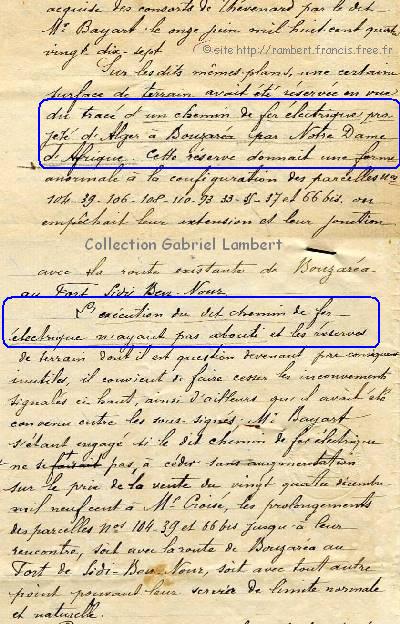 acquise des consorts de Thévenard par le dit
Mr. Bayart le onze juin mil huit cent quatre
vingt dix-sept
© site http://rambert.francis.free.fr
Sur les dits mêmes plans, une certaine
surface de terrain avait été réservée en vue
du tracé d'un chemin de fer électrique pro
jeté d'Alger à Bouzaréa par Notre Dame
d'Afrique. Cette réserve donnait une forme
anormale à la configuration des parcelles nos
104-39-106-108-110-93-33-37 et 66 bis, ou
empêchait leur extension et leur jonction
Collection Gabriel Lambert
avec la route existante de Bouzaréa
au Fort Sidi Ben-Nour
L'exécution du dit chemin de fer
électrique n'ayant pas abouti et les réserves
de terrain dont il est question devenant par conséquent
inutiles, il convient de faire cesser les inconvénients
signalés ci haut, ainsi d'ailleurs qu'il avait été
convenu entre les sous-signés, Mr. Bayart
s'étant engagé si le dit chemin de fer électrique
ne se faisait pas, à céder sans augmentation
sur le prix de la vente du vingt quatre décembre
mil neuf cent à Mr. Croisé, les prolongements
des parcelles nos 104-39 et 66 bis jusqu'à leur
rencontre, soit avec la route de Bouzaréa au
Fort de Sidi-Ben-Nour, soit avec tout autre
point pouvant leur servir de limite normale
et naturelle.